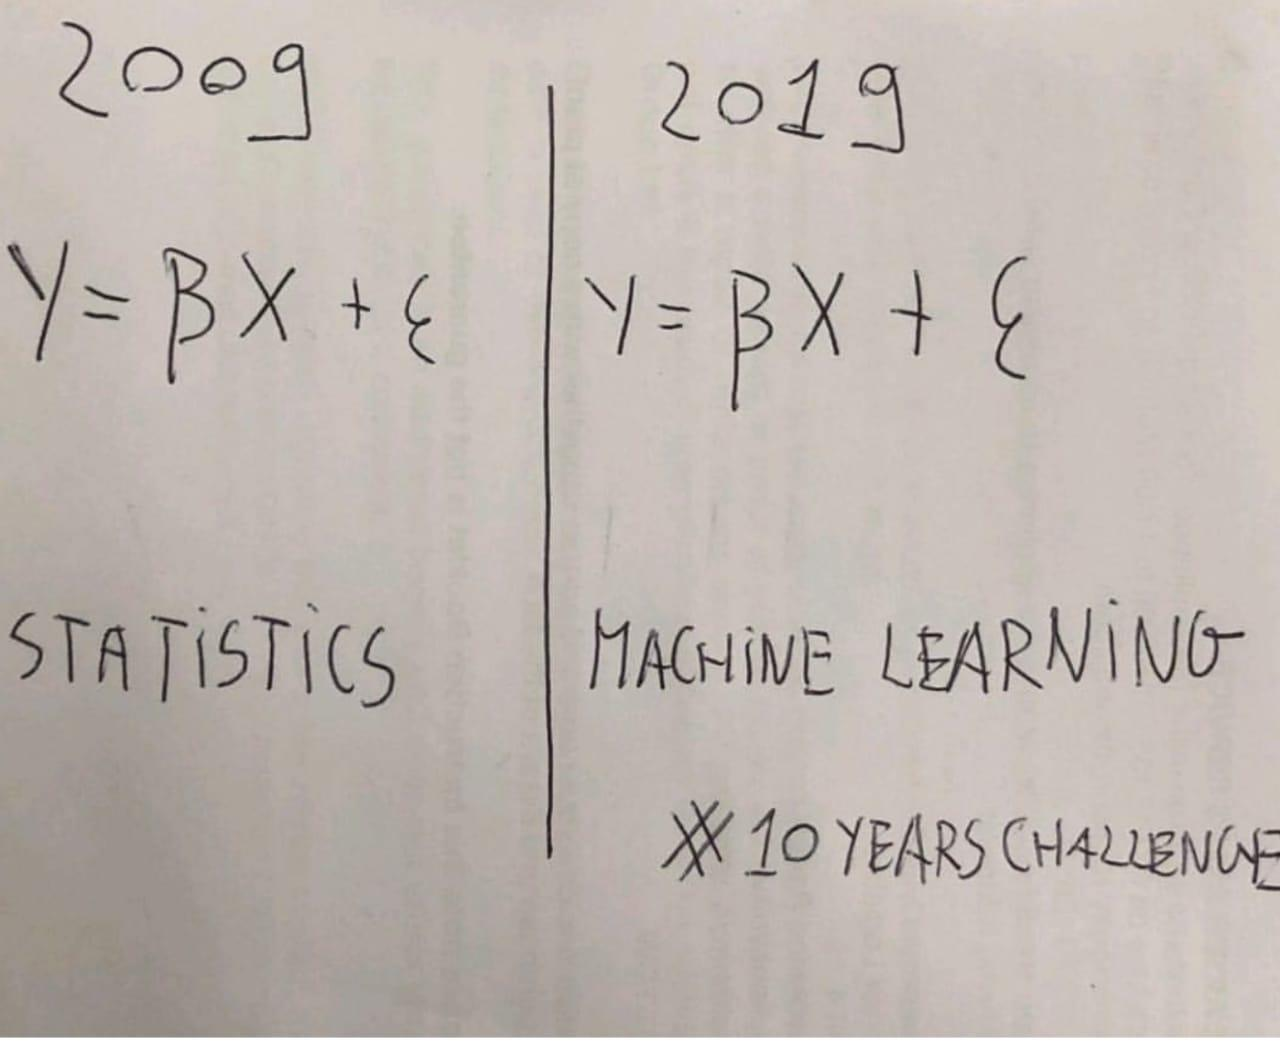 2009
Y = βX + ε
STATISTICS
2019
Y = βX + ε
MACHINE LEARNING
#10YEARSCHALLENGE